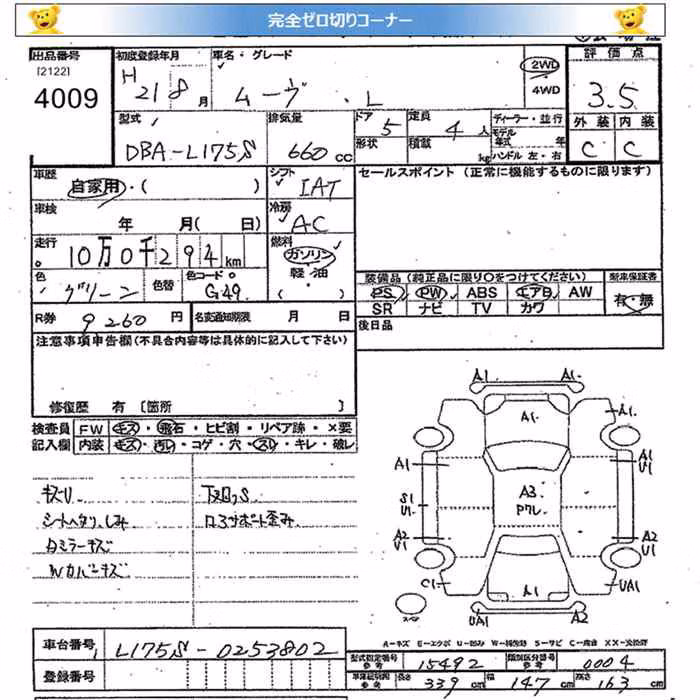 完全ゼロ切りコーナー
出品番号
[2122]
4009
初度登録年月
H 21 8 月
車名・グレード
ムーヴ L
2WD
4WD
評価点
3.5
外装 内装
C C
型式
DBA-L175S
排気量
660 cc
ドア 5
形状
定員 4 人
積載 kg
ディーラー・並行
モデル年式 年
ハンドル 左・右
車歴
自家用・( )
シフト
IAT
セールスポイント (正常に機能するものに限ります)
車検
年 月( 日)
冷房
AC
走行
10万0千294 km
燃料
ガソリン
軽・油
色
グリーン
色替
色コード
G49
装備品 (純正品に限り○をつけてください)
PS PW ABS エアB AW
SR ナビ TV カワ
新車保証書
有・無
R券 9260 円
名変通知期限 月 日
後日品
注意事項申告欄 (不具合内容等は具体的に記入して下さい)
修復歴 有 [箇所 ]
検査員 FW キズ・飛石・ヒビ割・リペア跡・×要
記入欄 内装 キズ・汚レ・コゲ・穴・スレ・キレ・破レ
キズU
シートヘタリ、しみ
Wカバーキズ
コアサポート歪み
A1 A1
A1
A1
A1
A1
U1
S1
U1
A3
Pクレ
A2
U1
A2
U1
C1
A1
UA1
UA1
A2
スペア
A-キズ E-エクボ U-凹み W-補修跡 S-サビ C-腐食 X X X-交換跡
車台番号 L175S-0253802
登録番号
型式指定番号 参考 15492
類別区分番号 参考 0004
車庫証明用 参考 長さ 339 cm 幅 147 cm 高さ 163 cm